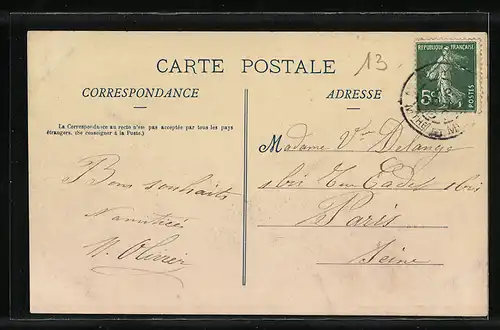 13
CARTE POSTALE
CORRESPONDANCE
ADRESSE
REPUBLIQUE FRANÇAISE
5c
POSTES
La Correspondance au recto n'est pas acceptée par tous les pays
étrangers. (Se renseigner à la Poste.)
Bons souhaits
N amitiés
N. Olivier
Madame Vve Delange
1bis Rue Cadet 1bis
Paris
Seine